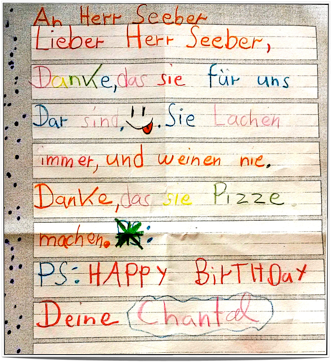 An Herr Seeber
Lieber Herr Seeber,
Danke, das sie für uns
Dar sind. Sie Lachen
immer, und weinen nie.
Danke, das sie Pizze
machen. :
PS: HAPPY BiRTHDay
Deine Chantal